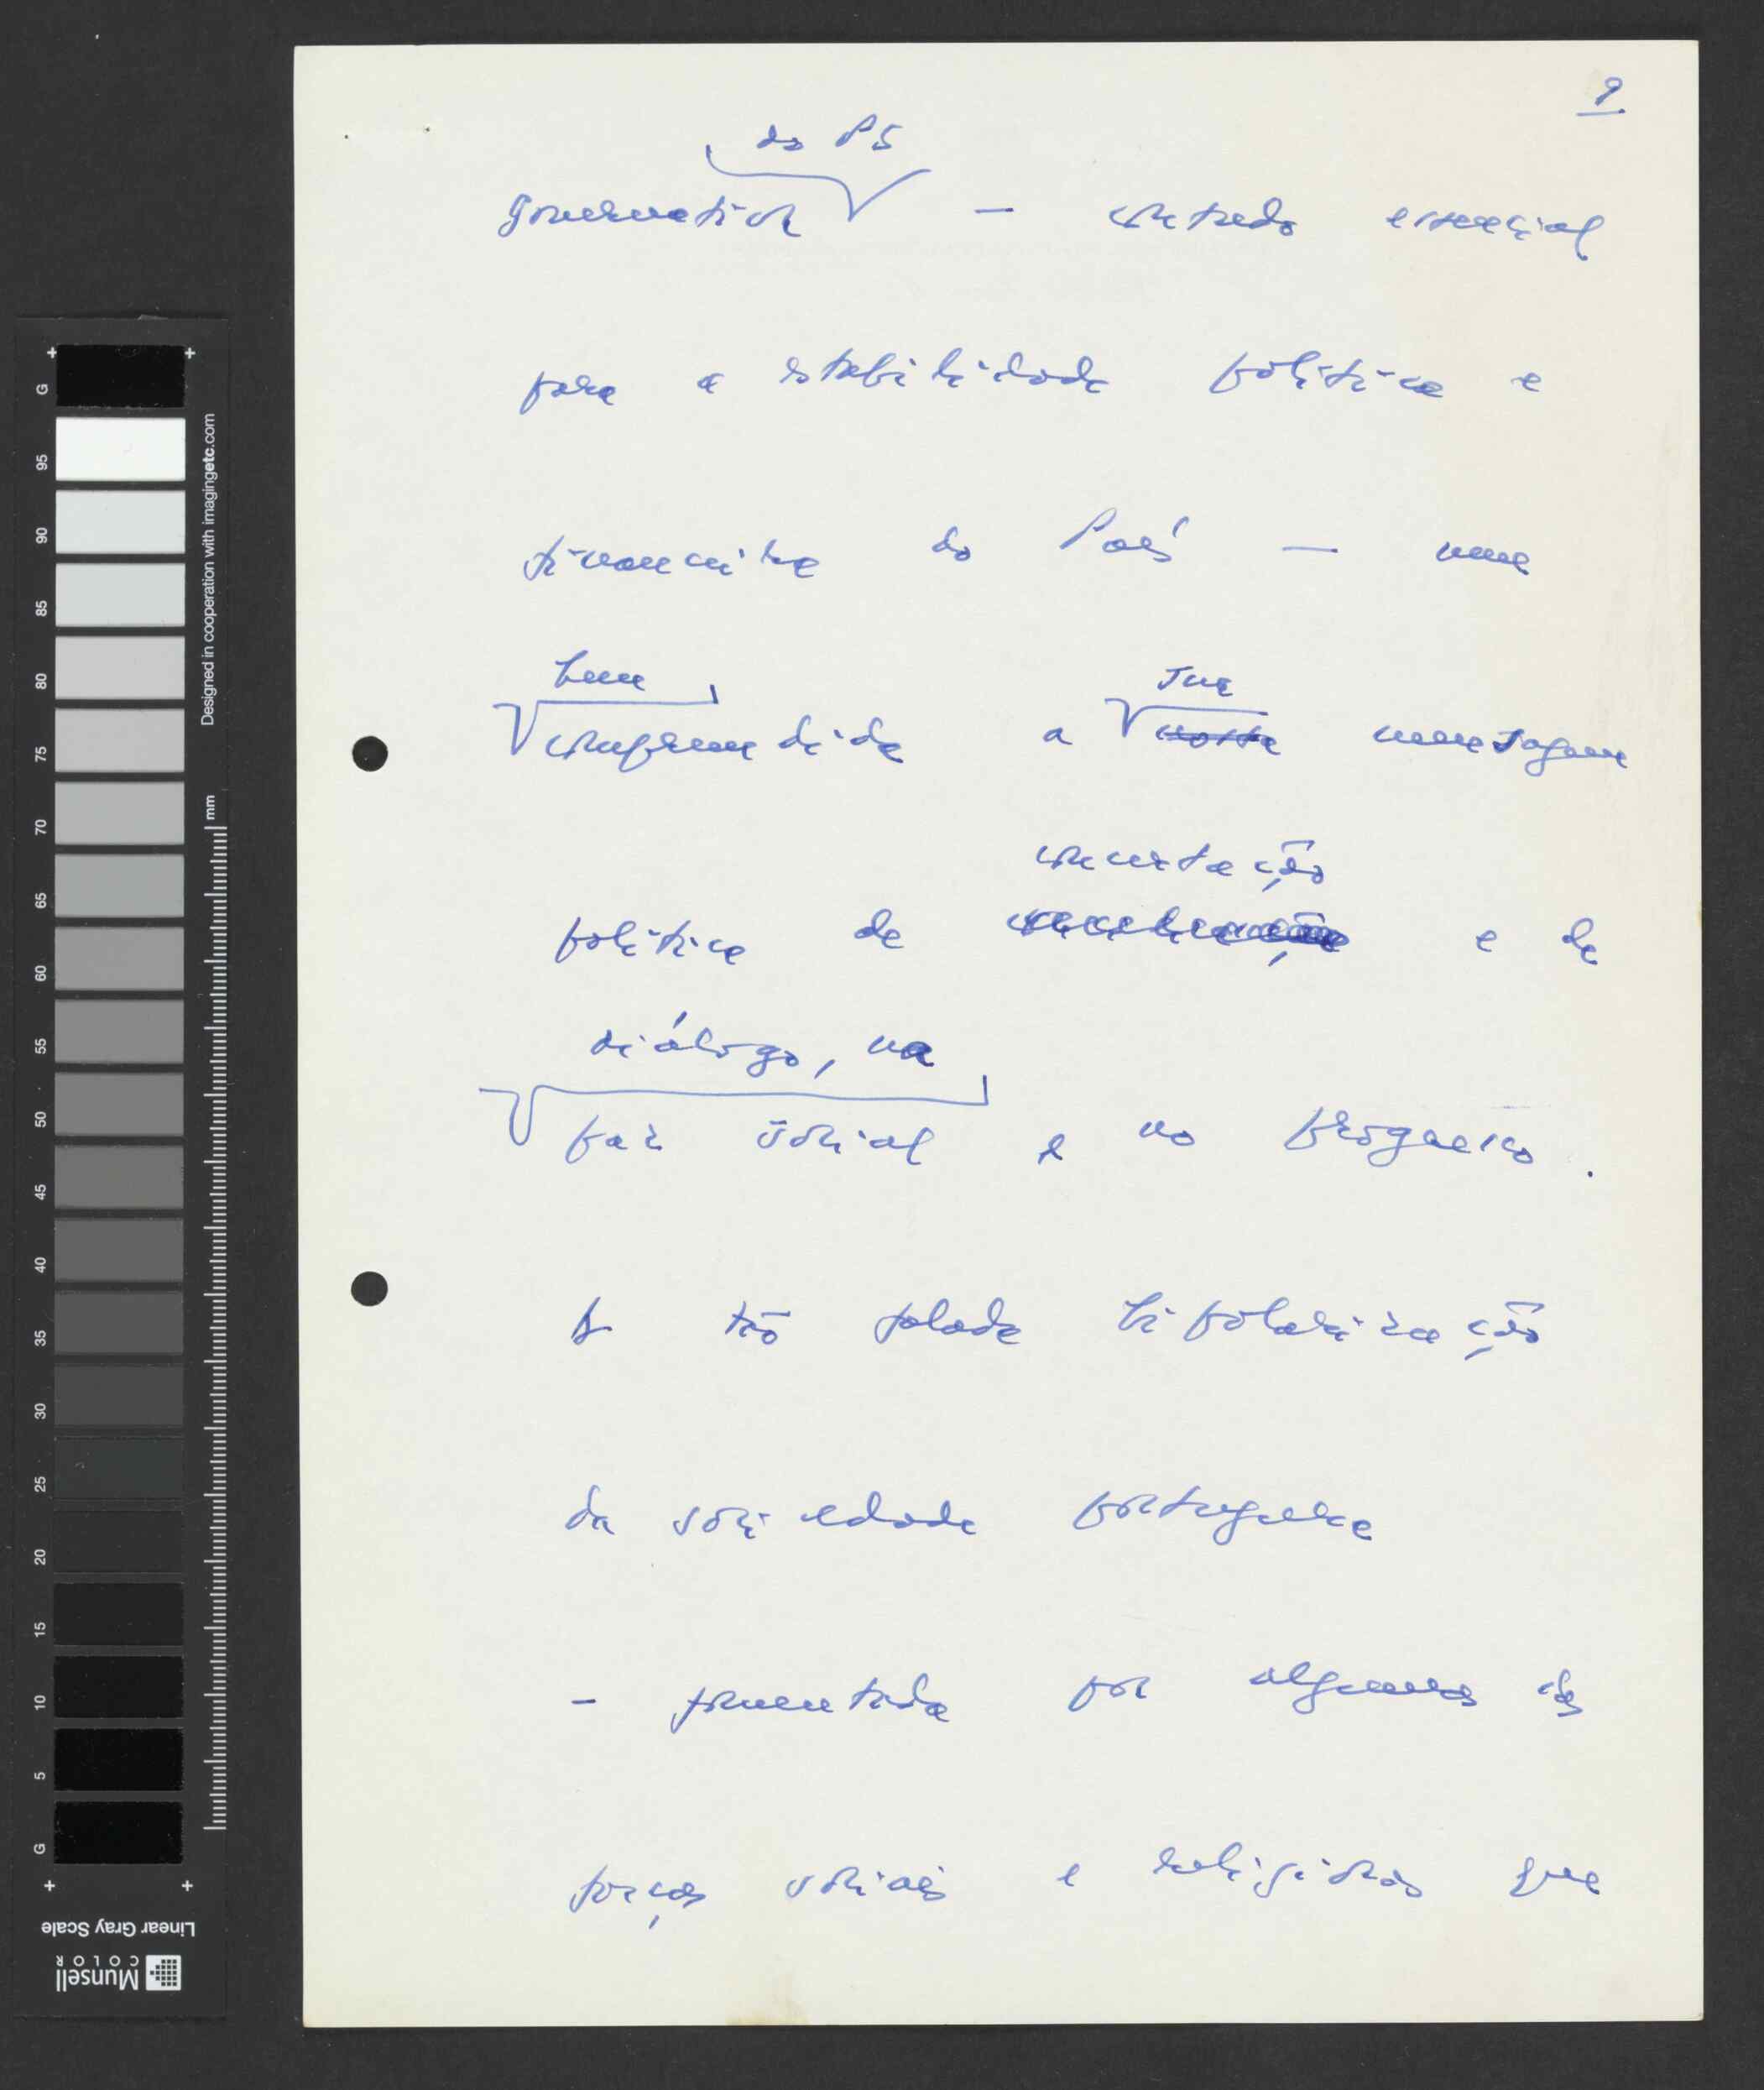 9.
do PS
governativa — contudo essencial
para a estabilidade política e
financeira do País — nem
bem
compreendida a nossa mensagem
sua
concertação
política de e de
diálogo, na
paz social e no progresso.
A tão falada bipolarização
da sociedade portuguesa
- fomentada por algumas das
forças sociais e religiosas que
G
95
90
85
80
75
70
65
60
55
50
45
40
35
30
25
20
15
10
5
G
mm
Designed in cooperation with imagingetc.com
Linear Gray Scale
Munsell
COLOR